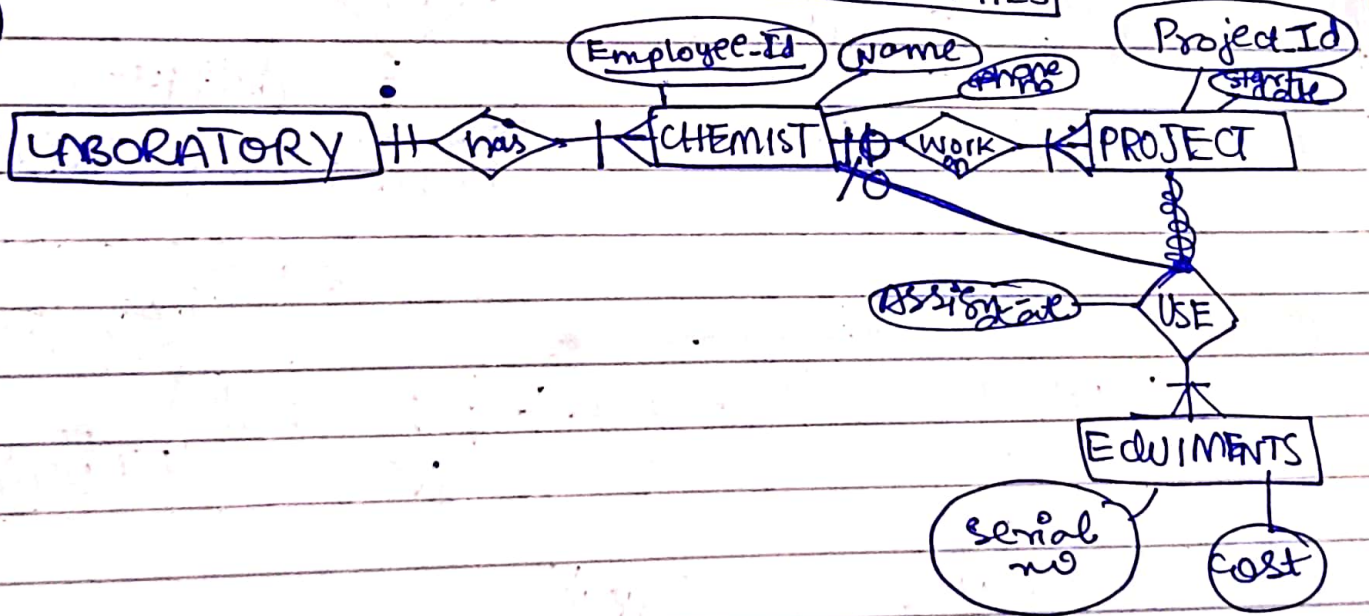 Employee-Id
Name
Phone no
Project_Id
Start date
LABORATORY
has
CHEMIST
Work on
PROJECT
Assign date
USE
EQUIMENTS
Serial no
Cost